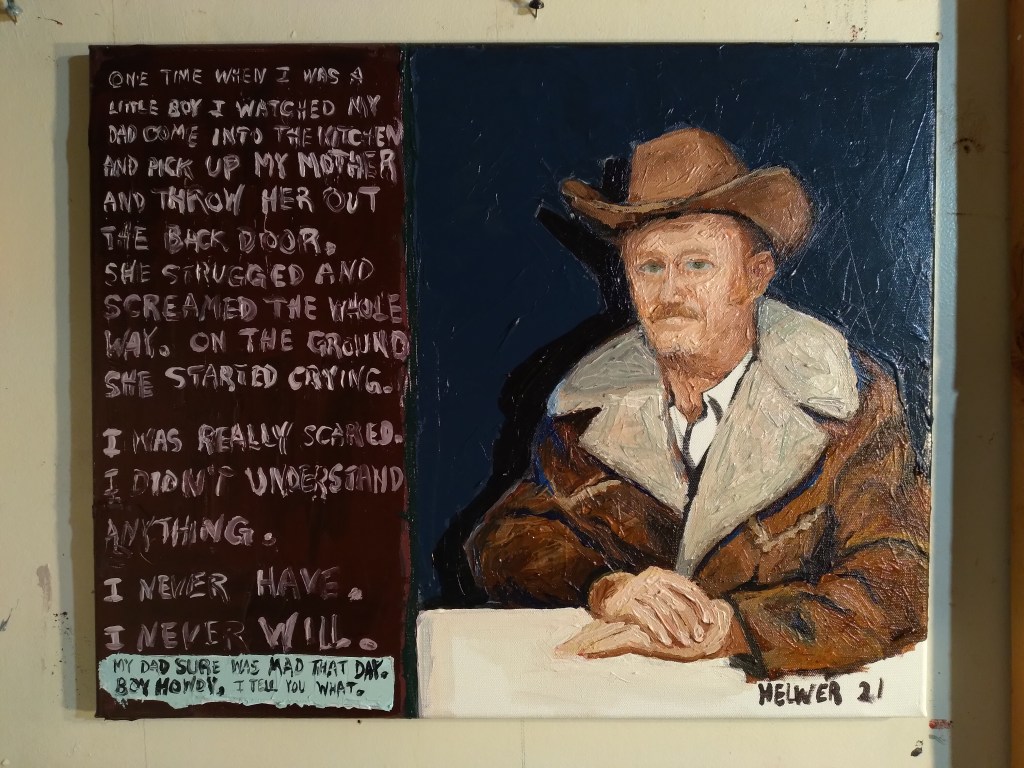 ONE TIME WHEN I WAS A
LITTLE BOY I WATCHED MY
DAD COME INTO THE KITCHEN
AND PICK UP MY MOTHER
AND THROW HER OUT
THE BACK DOOR.
SHE STRUGGED AND
SCREAMED THE WHOLE
WAY. ON THE GROUND
SHE STARTED CRYING.
I WAS REALLY SCARED.
I DIDN'T UNDERSTAND
ANYTHING.
I NEVER HAVE.
I NEVER WILL.
MY DAD SURE WAS MAD THAT DAY.
BOY HOWDY, I TELL YOU WHAT.
HELWER 21